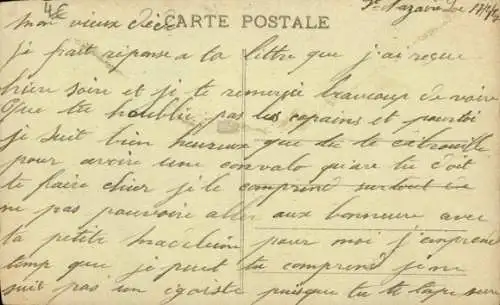 St Nazaire le 17/7/15
4 €
CARTE POSTALE
mon vieux dédé
je fait réponse a ta lettre que j'ai reçue
hier soire et je te remercie beaucoup de voire
que tu n'oublie pas les copains et pour toi
je suit bien heureux que tu te débrouille
pour avoire une convalo qu'are tu doit
te faire chier je le comprend surtout de
ne pas pouvoire aller aux bonneure avec
ta petite madelein pour moi j'en prend
temp que je peut tu comprend je ne
suit pas un égoiste puisque tu te tape sur